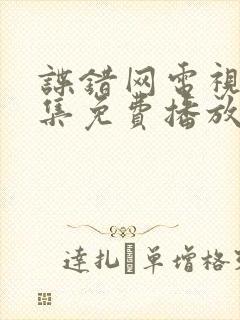 諜錯网電視
集免費播放
達扎 單增格